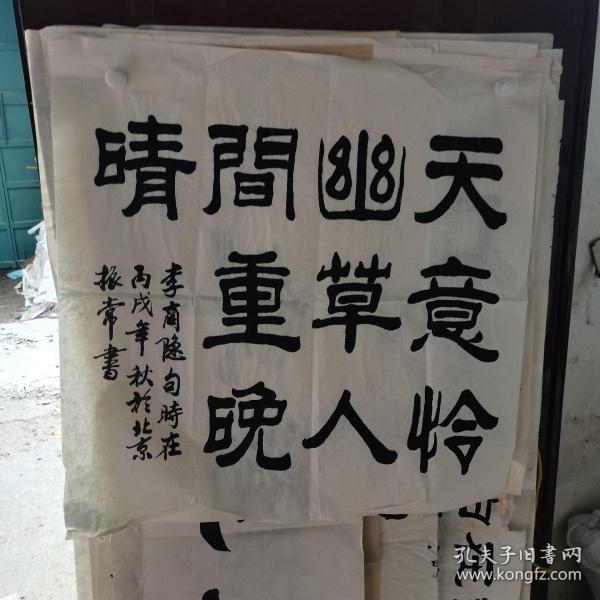 天意怜
幽草人
間重晚
晴
李商隐句時在
丙戌年秋於北京
振常書
孔夫子旧書网
www.kongfz.com